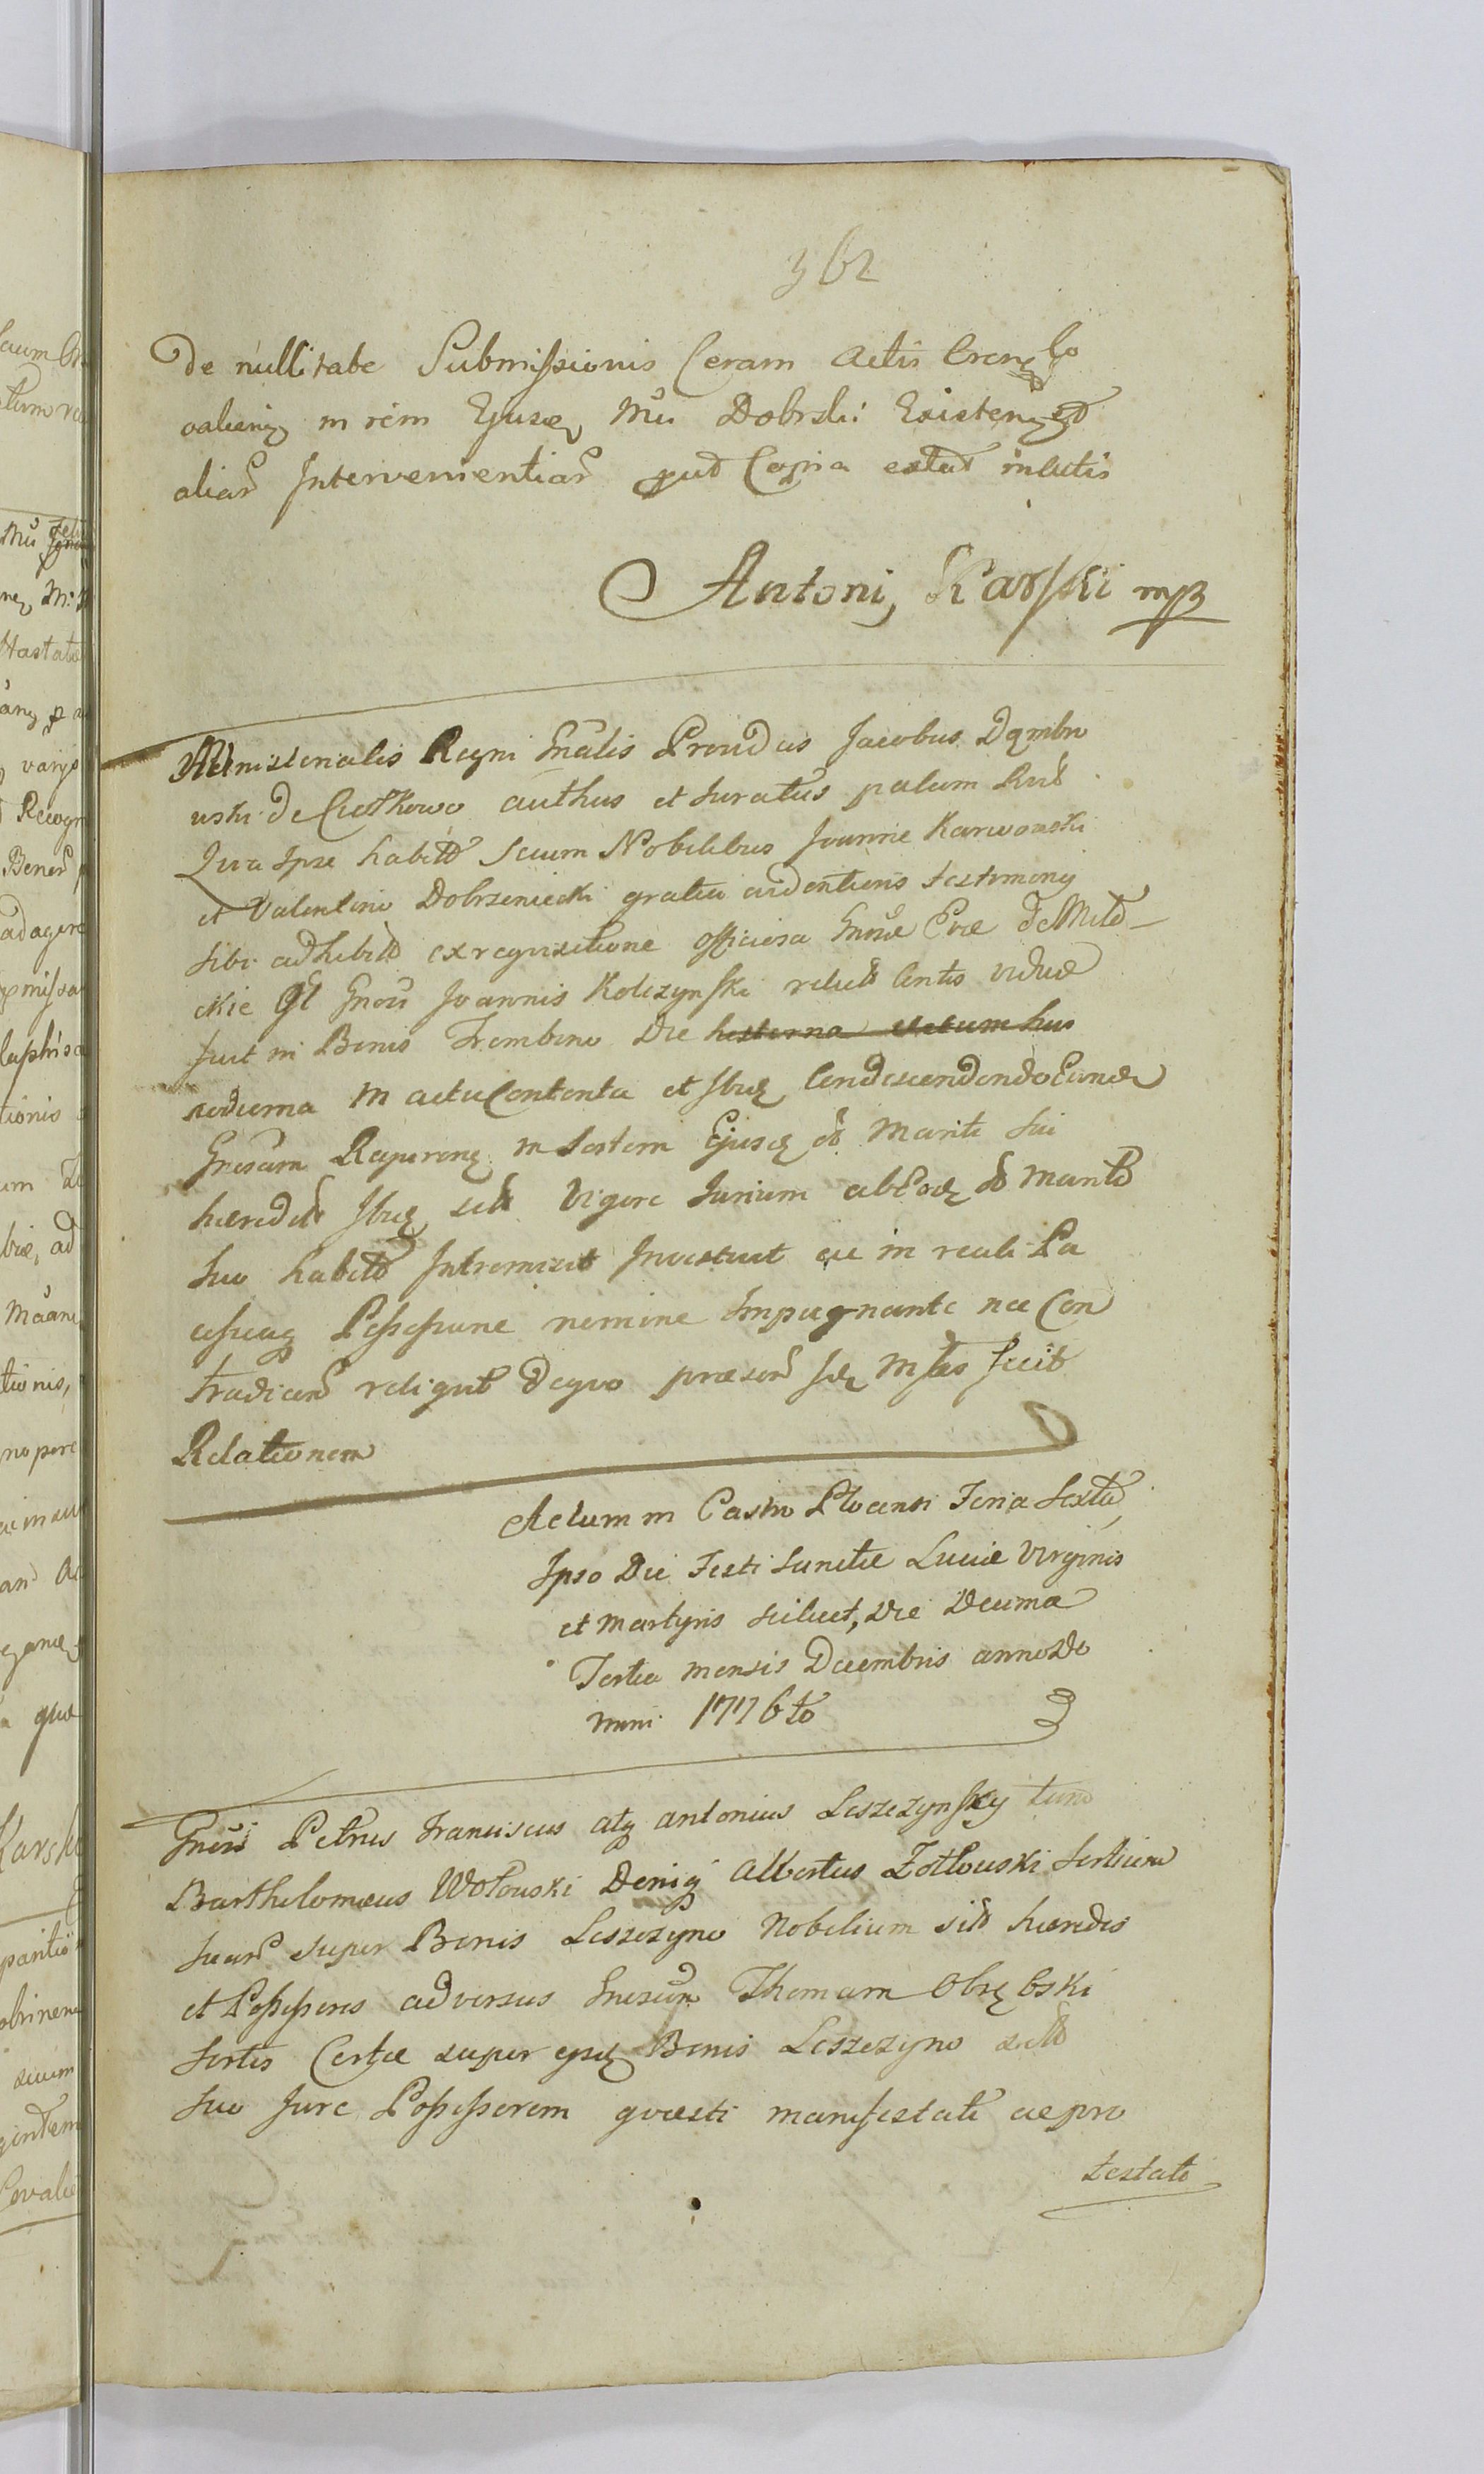 362
De nullitate Submissionis Coram Actis
in rem Ejusq Mci Dobrski Existen et
aliar Intervenientiar put Copia extat in actis
Antoni, Karski mp
Ministerialis Regni Gnalis Providus Jacobus Dąmbro
wski De Ciołkowo authus et Juratus palam
Qvia Ipse habitis Secum Nobilibus Joanne Karwowski
et Valentino Dobrzeniecki gratia evidentioris testimonij
Sibi adhibitis ex reqvisitione officiosa Gnosae Evae de
ckie Gsi Joannis Kolczynski relictae Ctis viduae
fuit in Bonis Trembino Die hesterna
hodierna in actu Contenta et Ibiq Condescendendo Eandē
Gnosam in Sortem Ejusq olim Mariti Sui
haered Ibiq sitā Vigore Jurium ab Eodē olim Marito
Suo habitor Intromisit Investivit ac in reali Pa
cificaq Possessione nemine Impugnante nec Con
tradicen reliqvit De qvo praesen Idē Mstlis fecit
Relationem
Actum in Castro Plocensi Feria Sexta,
Ipso Die Festi Sanctae Luciae Virginis
et Martyris Scilicet, Die Decima
Tertia mensis Decembris anno Do
mini 1776to
Gnosi Petrus Franciscus atq Antonius Leszczynscy tum
Bartholomaeus Wołowski Deniq Albertus Zołtowski Sortium
Suar super Bonis Leszczyno Nobilium sit haeredes
et Possessores adversus Gnosum Thomam Obrębski
Sortis Certae super ejsdē Bonis Leszczyno sitae
Suo Jure Possessorem qvaesti manifestati ac pro
testati